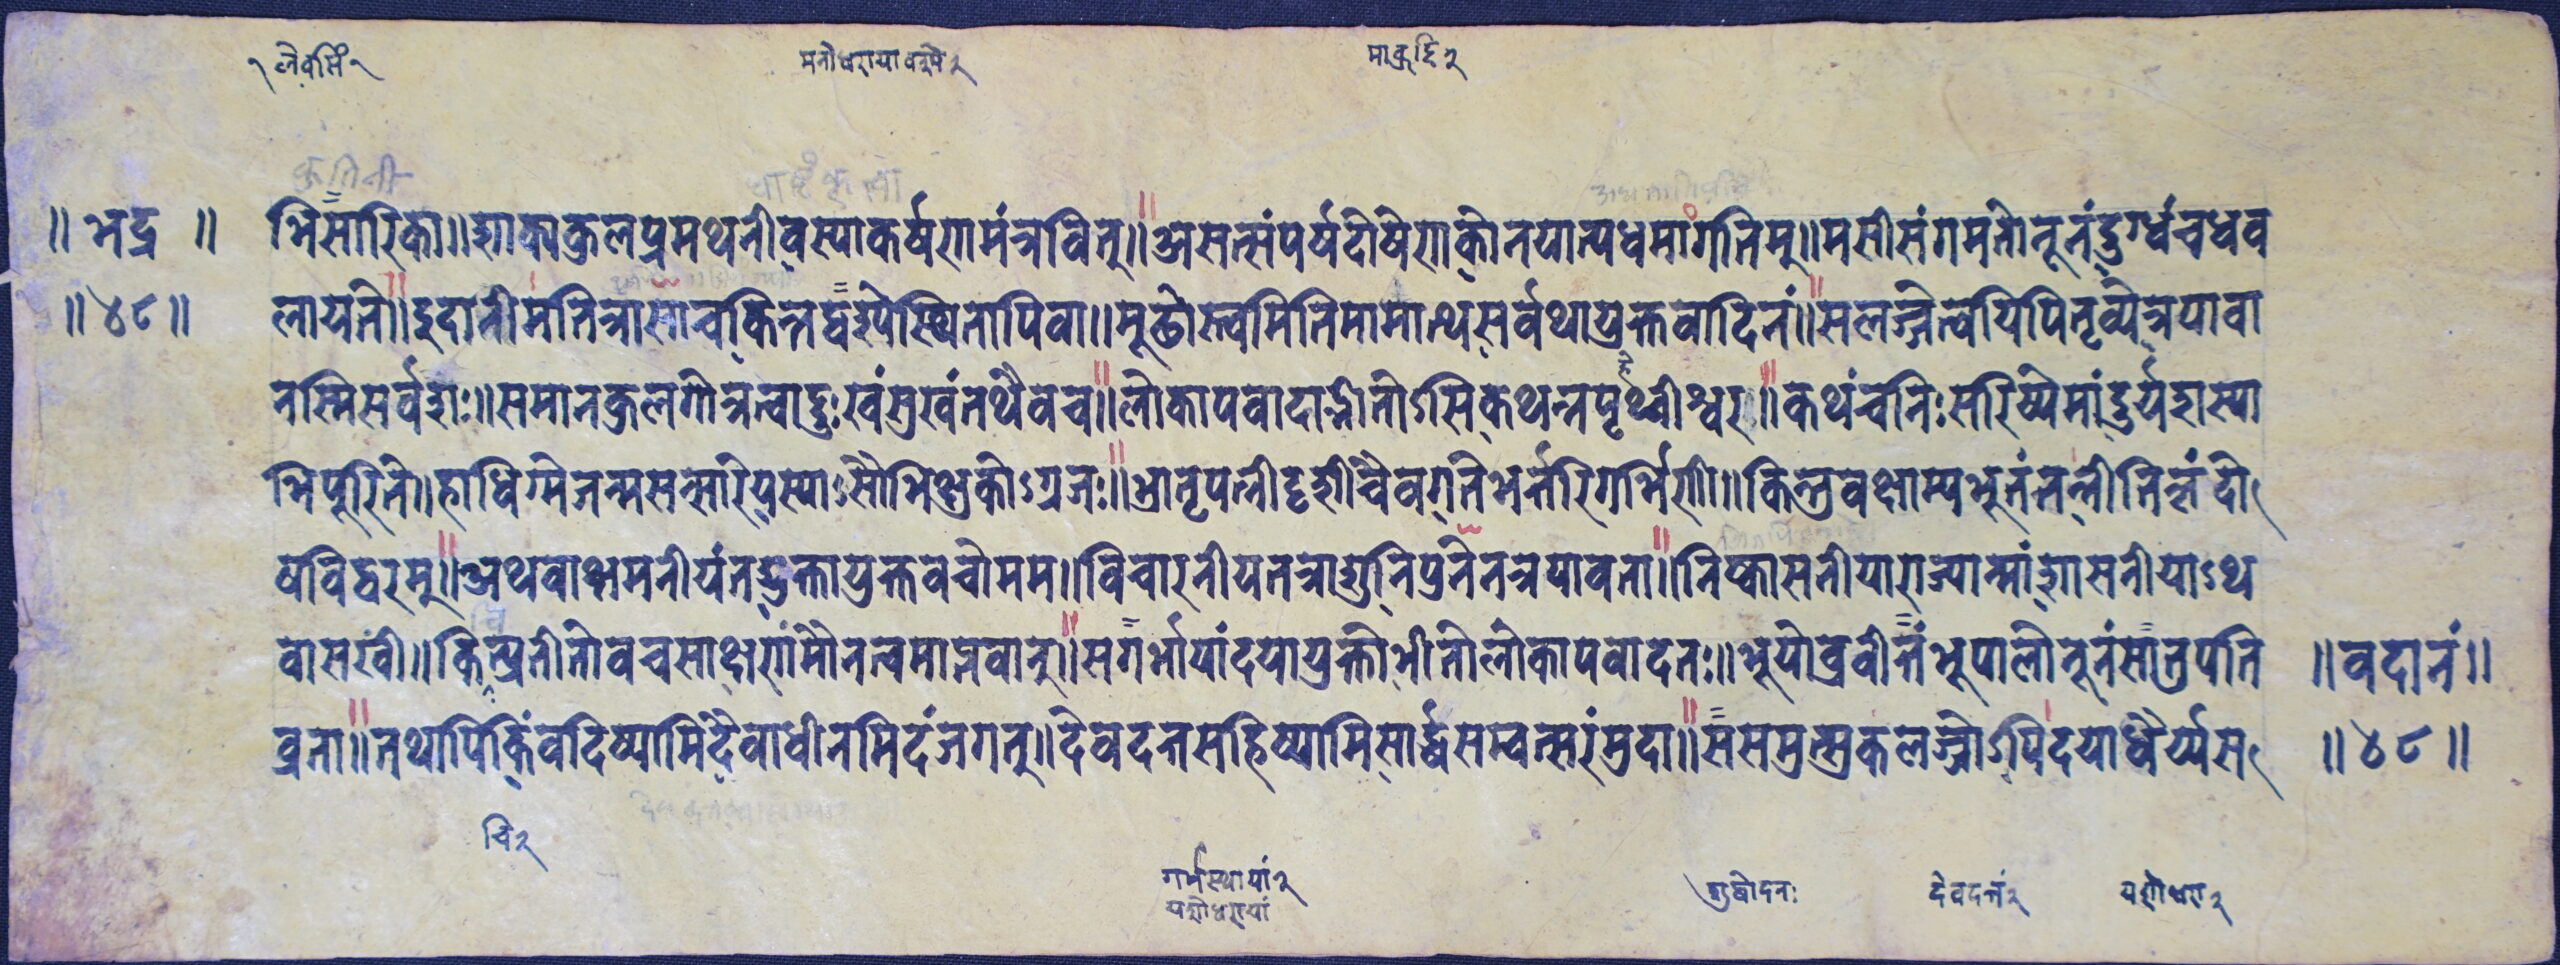 लेवमिं २ मनोधरायावपुषे २ माकुहि २
॥ भद्र ॥ भिसारिका॥शाक्यकुलप्रमथनीवस्याकर्षणमंत्रवित्॥असत्संपर्यदोषेणकोनयात्यधमांगतिम्॥मसीसंगमतोनूनंदुग्धंचधव
॥ ४८ ॥ लायते॥इदानीमतित्रासाचकिन्तद्वद्रूपेस्थितापिवा॥मूढोस्त्वमितिमामात्थसर्वथायुक्तवादिनं॥सलज्जेत्वयिपितृव्येत्रपावा
नस्मिसर्वशः॥समानकुलगोत्रत्वाद्दुःखंसुखंतथैवच॥लोकापवादाद्भीतोऽसिकथन्नपृथ्वीश्वर॥कथंचनिःसरिष्येमांदुर्यशस्या
भिपूरिते॥हाधिग्मेजन्मसत्सारेयस्याऽसौभिक्षुकोऽग्रजः॥भ्रातृपत्नीदृशीचैवगतेभर्त्तरिगर्भिणी॥किन्तुवक्षाम्यभूतंतन्नीतिन्नंदो
षविद्वरम्॥अथवाक्षमनीयंतद्युक्तायुक्तवचोमम॥विचारनीयतत्राशुनिपुनेनत्रपावता॥निष्कासनीयाराज्यान्मांशासनीयाऽथ
वासखी॥किन्प्रतीतोवचसाक्षणंमौनत्वमाप्तवान्॥सगर्भायांदयायुक्तोभीतोलोकापवादतः॥भूयोब्रवीत्तंभूपालोनूनंसातुपति ॥वदानं॥
व्रता॥तथापिकिंवदिष्यामिदैवाधीनमिदंजगत्॥देवदत्तसहिष्यामिसार्द्धसम्वत्सरंमुदा॥ससमुत्सुकलज्जोऽपिदयाधैर्य्यस ॥ ४८ ॥
चि २ गर्भस्थायां २ शुद्धोदनः देवदत्तं २ यशोधरा २
यशोधरायां